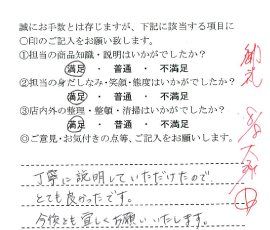 誠にお手数とは存じますが、下記に該当する項目に
○印のご記入をお願い致します。
①担当の商品知識・説明はいかがでしたか？
満足 ・ 普通 ・ 不満足
②担当の身だしなみ・笑顔・態度はいかがでしたか？
満足 ・ 普通 ・ 不満足
③店内外の整理・整頓・清掃はいかがでしたか？
満足 ・ 普通 ・ 不満足
◎ご意見・お気付きの点等、ご記入をお願いします。
丁寧に説明していただけたので
とても良かったです。
今後とも宜しくお願いいたします。
御礼